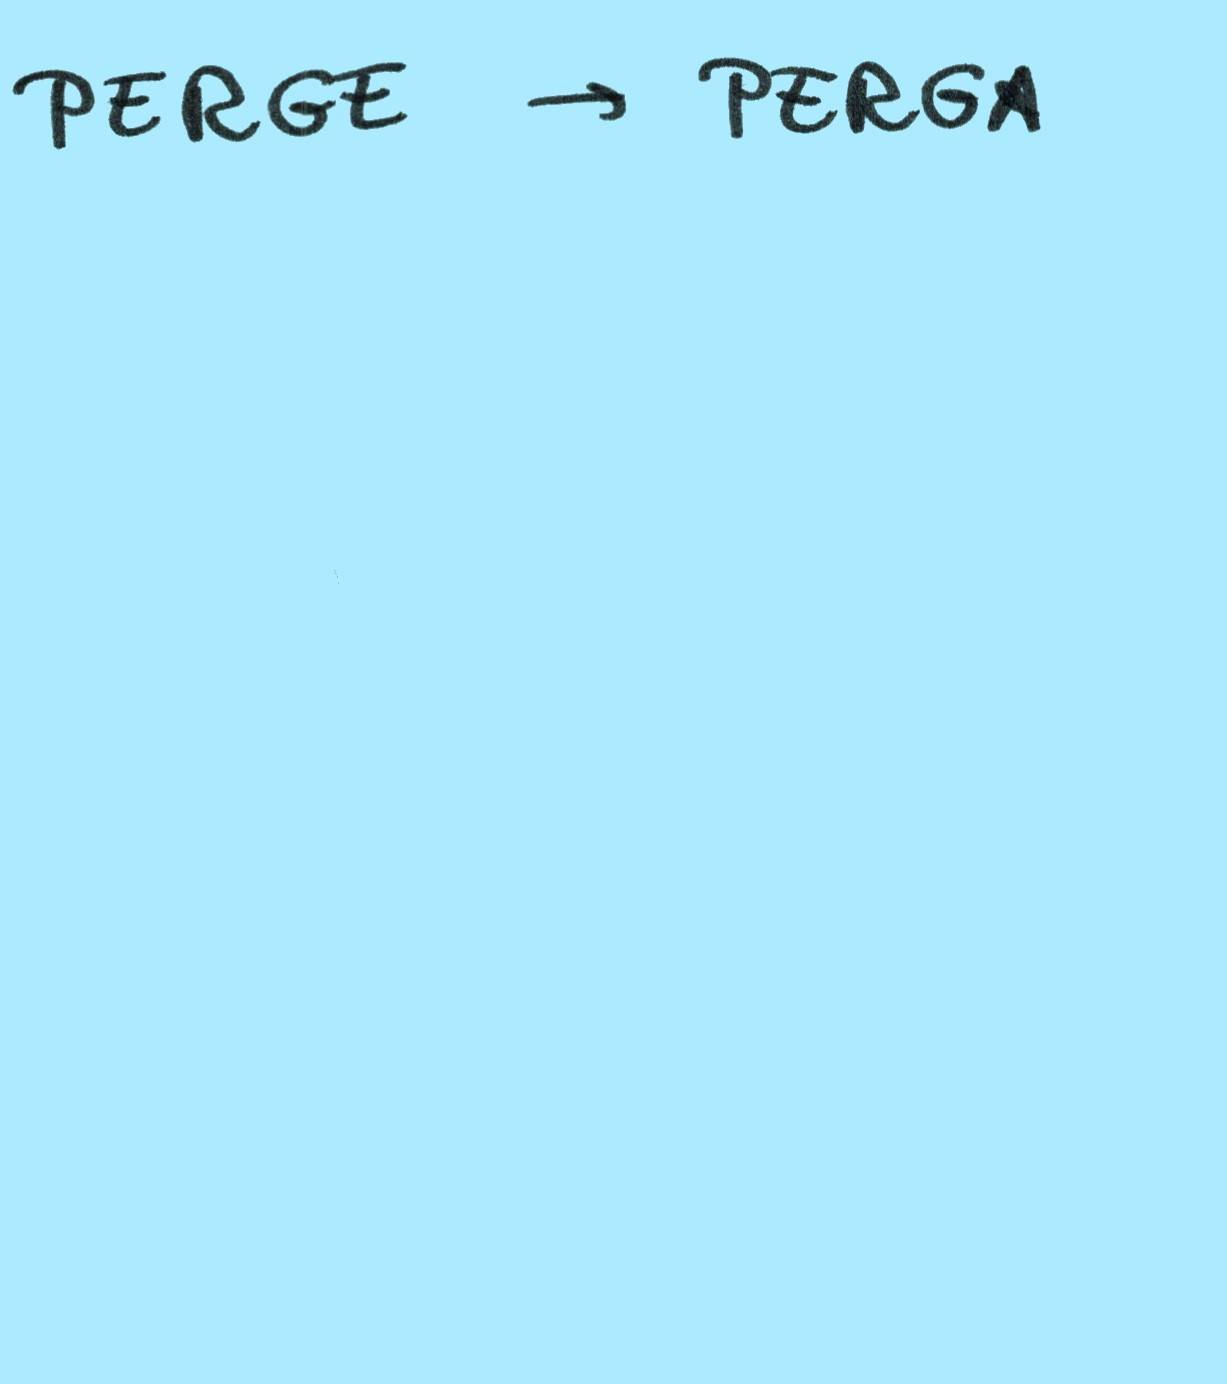 PERGE → PERGA